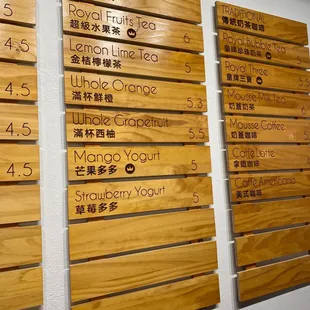 5
4.5
5
4.5
4.5
4.5
Royal Fruits Tea
超級水果茶 6
Lemon Lime Tea
金桔檸檬茶 5
Whole Orange
滿杯鮮橙 5.3
Whole Grapefruit
滿杯西柚 5.5
Mango Yogurt
芒果多多 5
Strawberry Yogurt
草莓多多 5
TRADITIONAL
傳統奶茶咖啡
Royal Bubble Tea
皇牌珍珠奶茶 5
Royal Three
皇牌三寶 5
Mousse Milk Tea
奶蓋奶茶 5
Mousse Coffee
奶蓋咖啡 5
Caffè Latte
拿鐵咖啡
Caffè Americano
美式咖啡